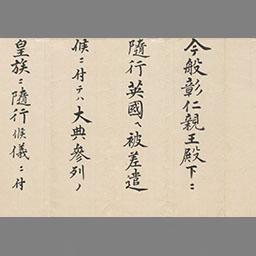 今般彰仁親王殿下ニ
隨行英國ヘ被差遣
候ニ付テハ大典參列ノ
皇族ニ隨行候儀ニ付